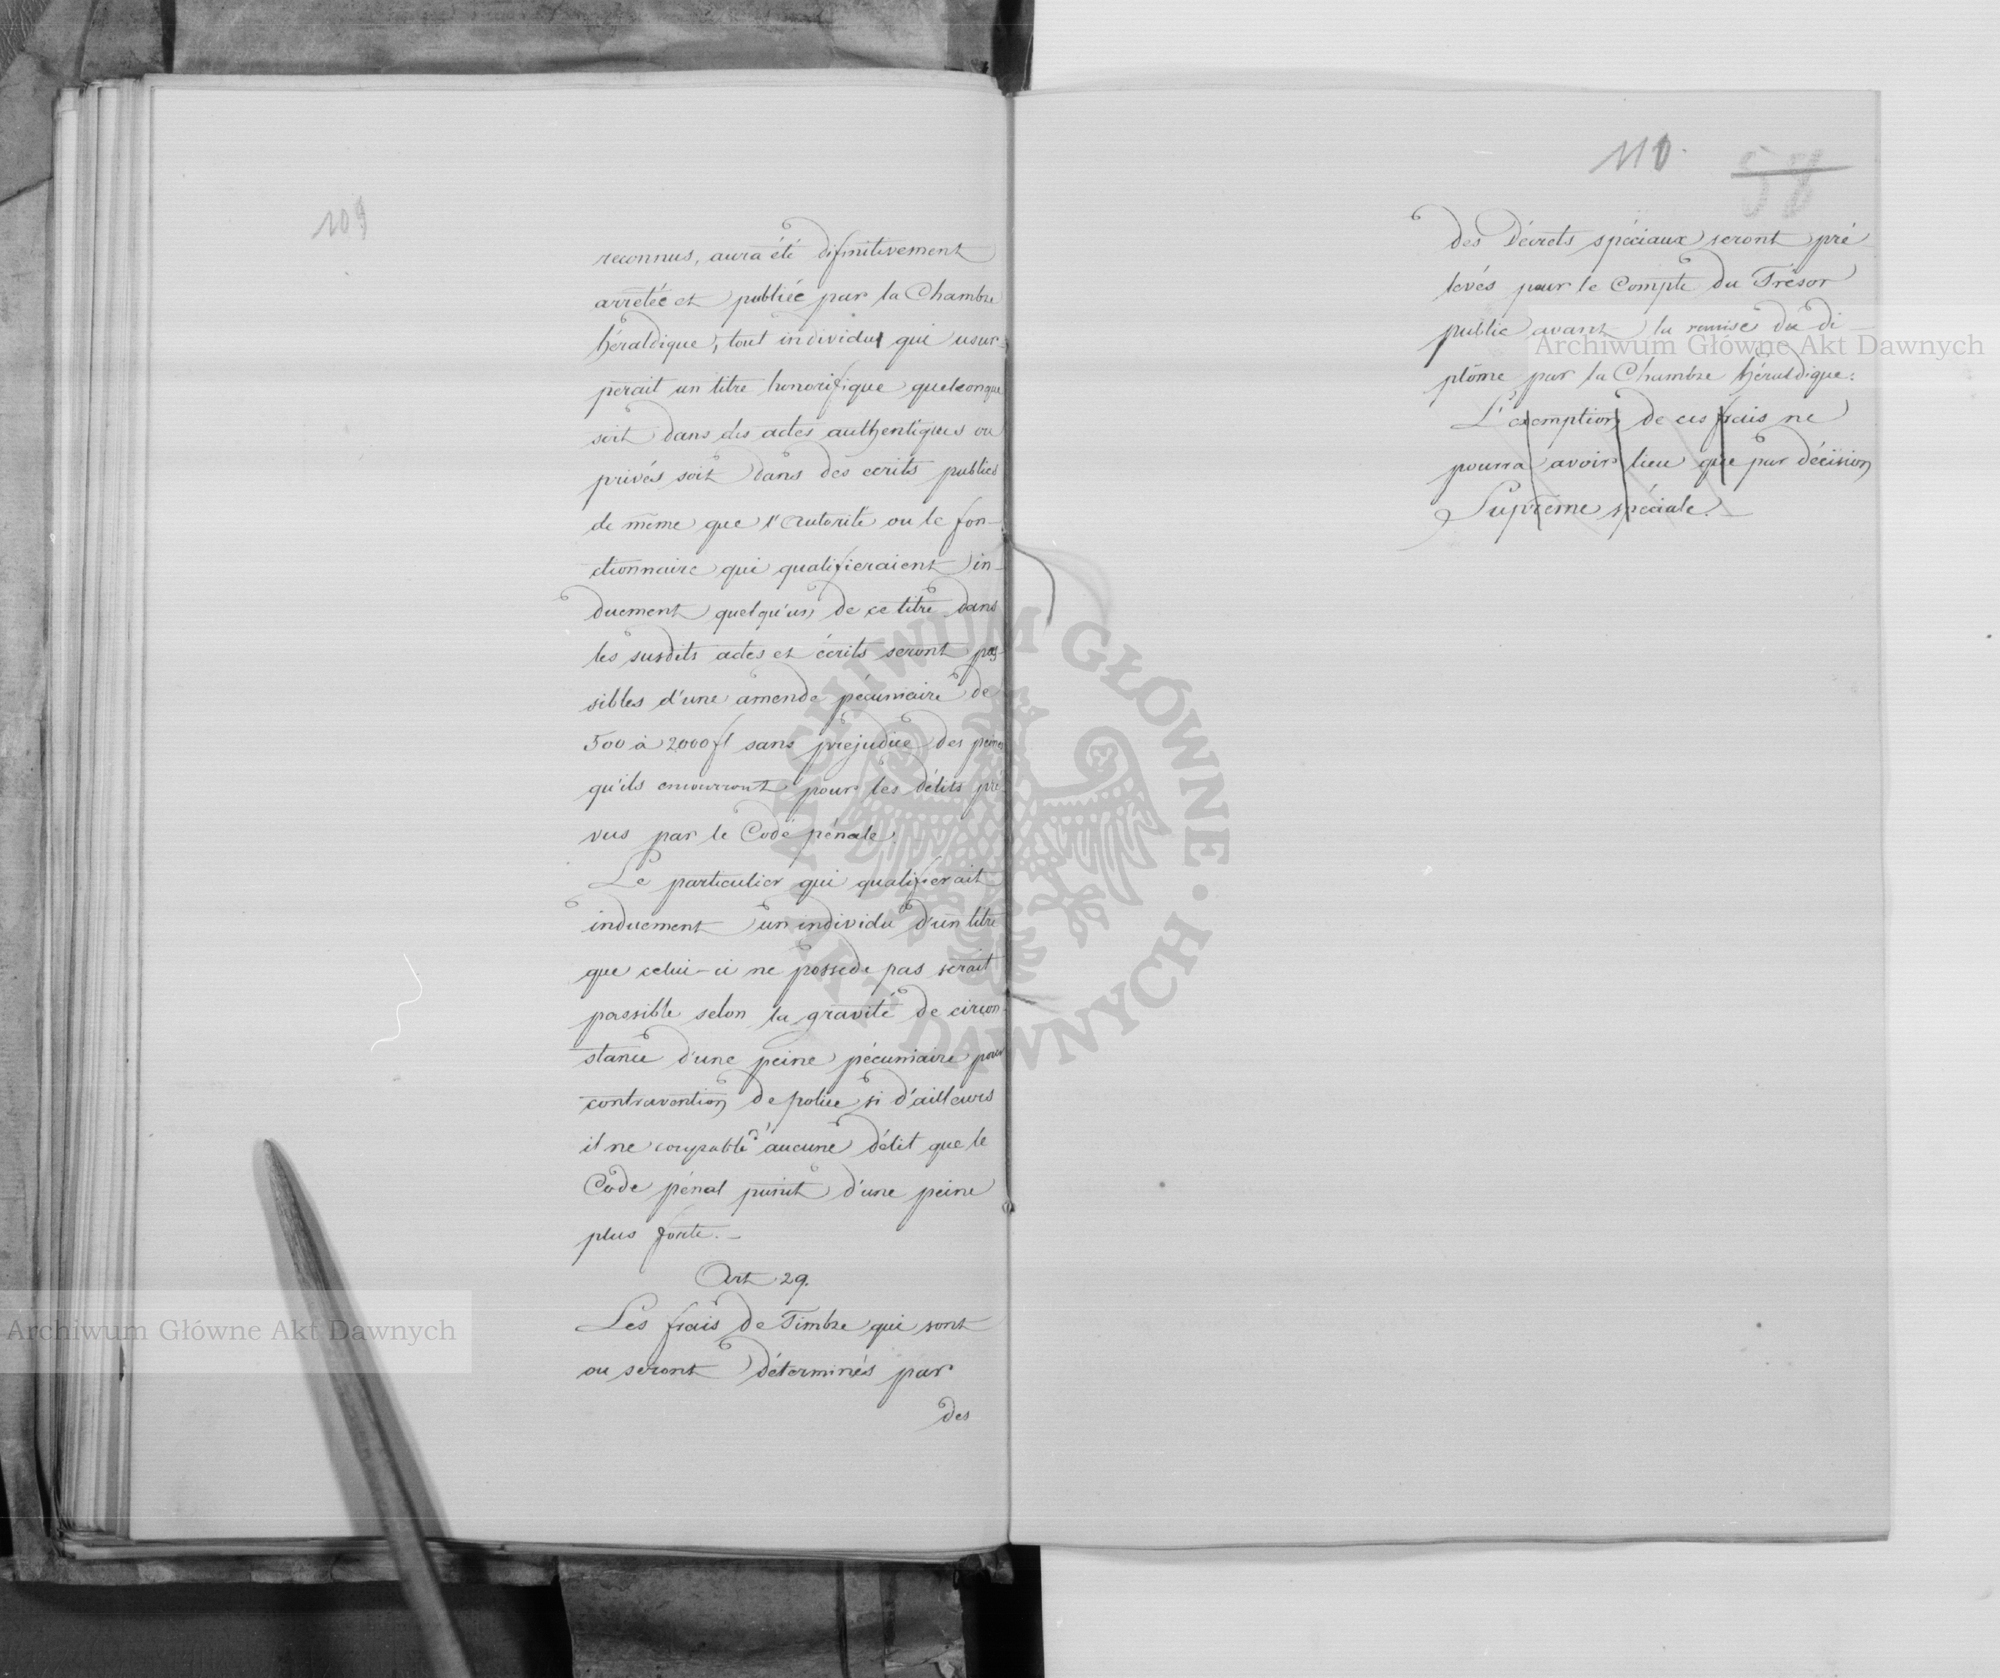 109
reconnus, aura été difinitivement
arrêtée et publiée par la Chambre
héraldique, tout individu qui usur-
perait un titre honorifique quelconque
soit dans des actes authentiques ou
privés soit dans des ecrits publics
de même que l'Autorité ou le fon-
ctionnaire qui qualifieraient in-
duement quelqu'un de ce titre dans
les susdits actes et écrits seront pas-
sibles d'une amende pecuniaire de
500 à 2000 fl sans préjudice des peines
qu'ils encourront pour les délits pré
vus par le Code pénale.
Le particulier qui qualifierait
induement un individu d'un titre
que celui-ci ne possede pas serait
passible selon la gravité de circon-
stance d'une peine pécuniaire pour
contravention de police si d'ailleurs
il ne coupable d'aucune délit que le
Code pénal punit d'une peine
plus forte. —
Art. 29.
Les frais de Timbre qui sont
ou seront déterminés par
des
110.
58
des Décrets spéciaux seront pré
levés pour le Compte du Trésor
public avant la remise du di-
plôme par la Chambre héraldique.
L'exemption de ces frais ne
pourra avoir lieu que par décision
Suprême spéciale. —
Archiwum Główne Akt Dawnych
Archiwum Główne Akt Dawnych
ARCHIWUM GŁÓWNE · AKT DAWNYCH ·